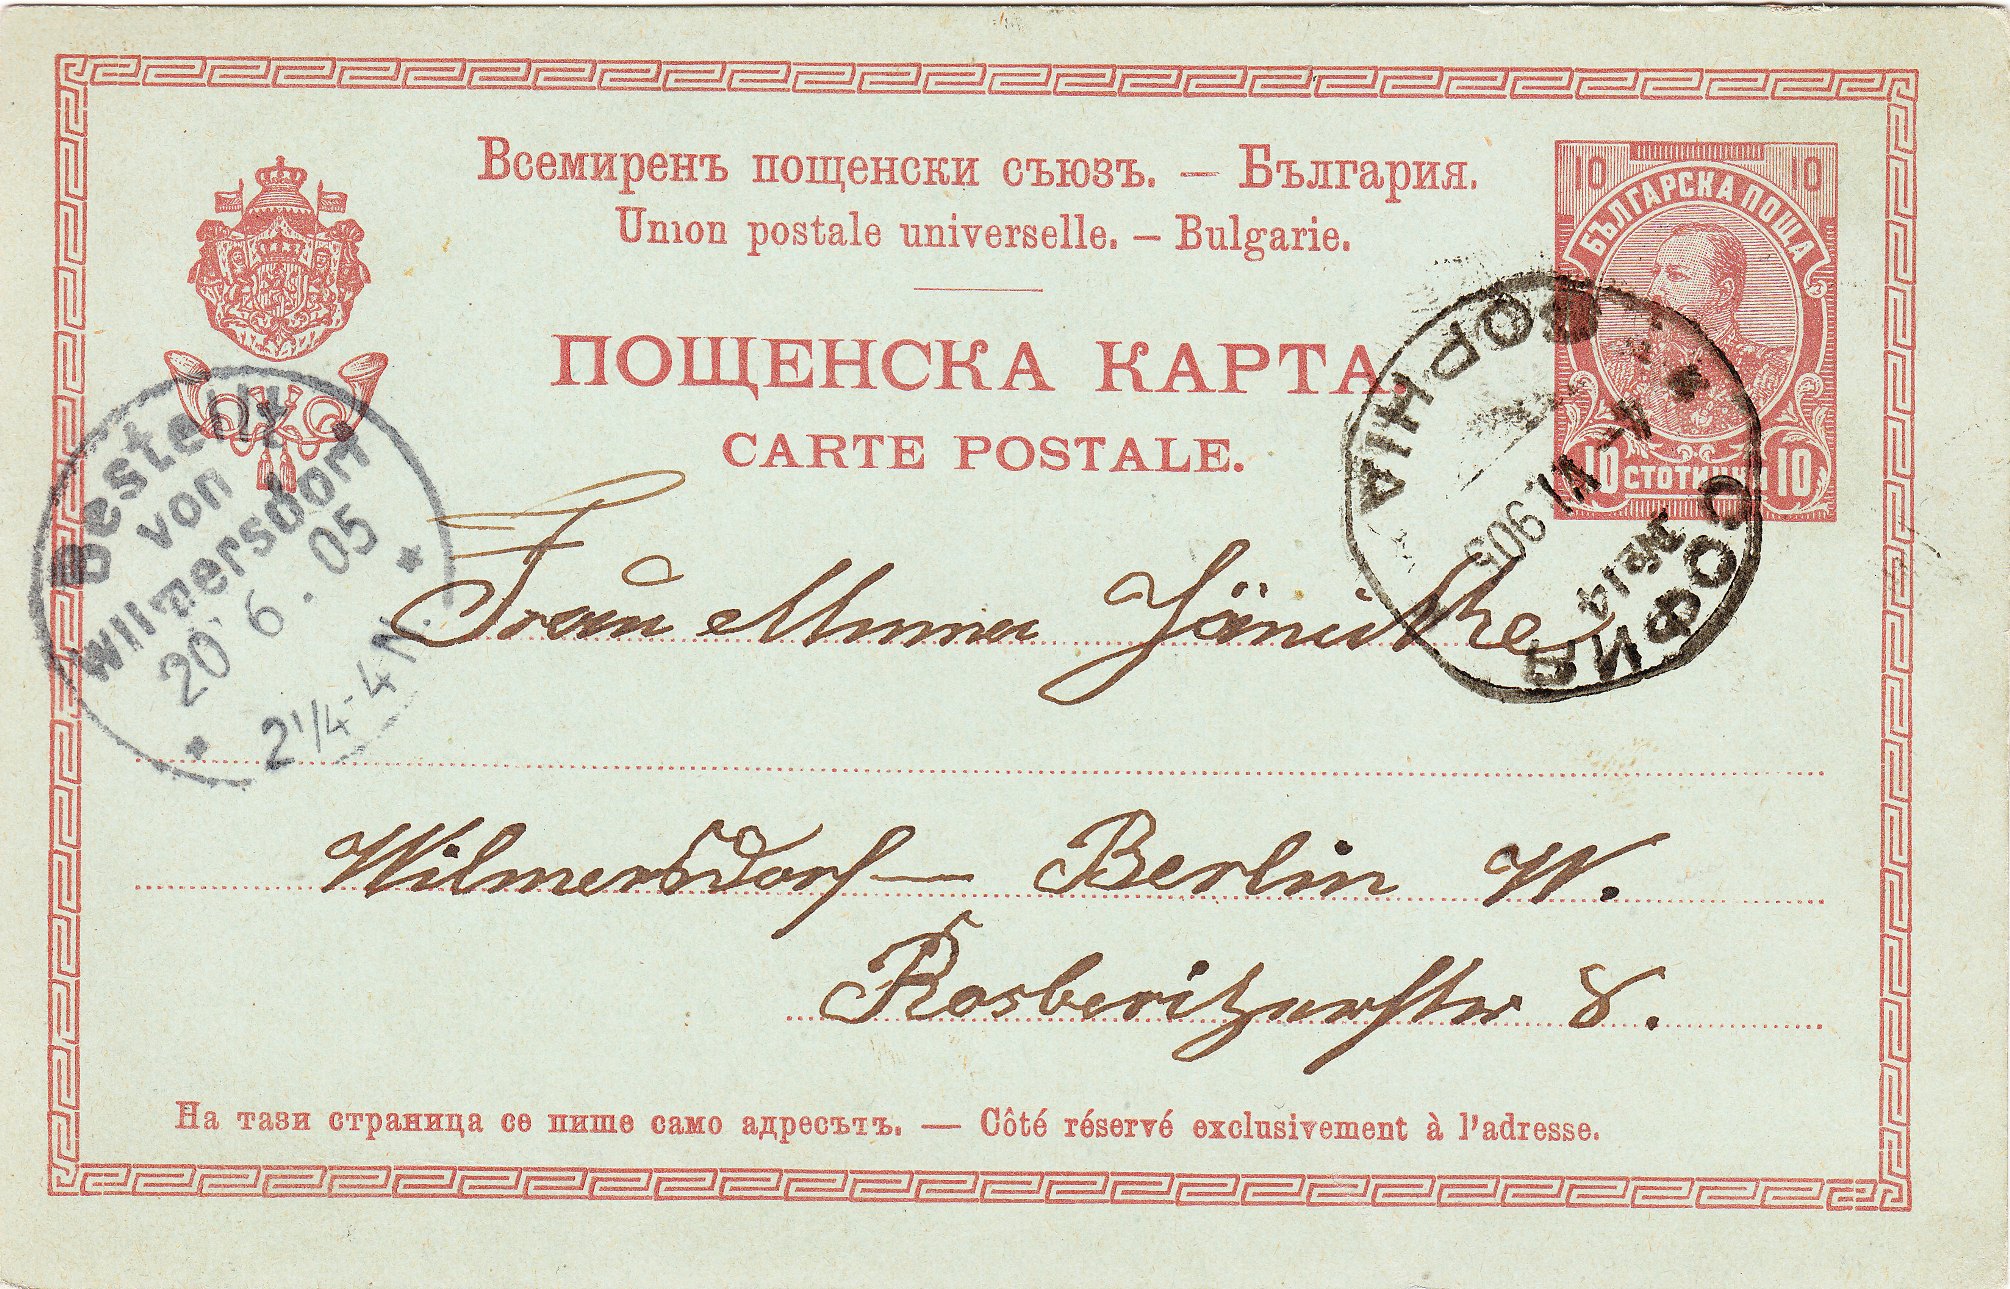 Всемиренъ пощенски съюзъ. — България.
Union postale universelle. — Bulgarie.
ПОЩЕНСКА КАРТА.
CARTE POSTALE.
10 10
БЪЛГАРСКА ПОЩА
10 СТОТИНКИ 10
СОФИЯ
ГОРНІА
VI. 905
Bestellt
von
Wilmersdorf
20. 6. 05
2 1/4 - 4 N.
Frau Minna
Wilmersdorf — Berlin W.
8.
На тази страница се пише само адресътъ. — Côté réservé exclusivement à l'adresse.